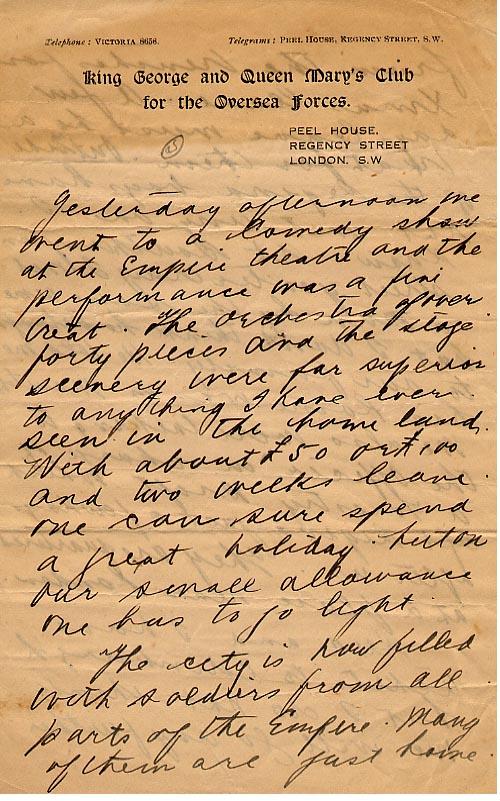 Telephone: VICTORIA 8656. Telegrams: PEEL HOUSE, REGENCY STREET, S.W.
King George and Queen Mary's Club
for the Oversea Forces.
PEEL HOUSE,
REGENCY STREET
LONDON. S.W
25
Yesterday afternoon we
went to a Comedy show
at the Empire theatre and the
performance was a fine
treat. The orchestra of over
forty pieces and the stage
scenery were far superior
to anything I have ever
seen in the home land.
With about £50 or £100
and two weeks leave
one can sure spend
a great holiday. but on
our small allowance
one has to go light
The city is now filled
with soldiers from all
parts of the Empire. Many
of them are just home